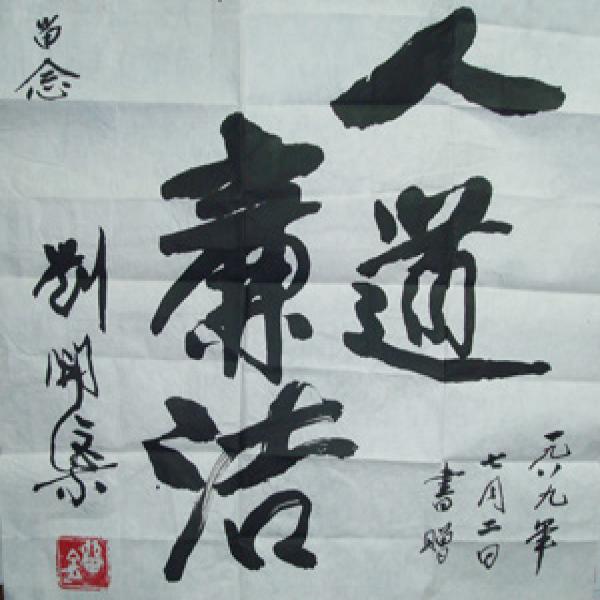 人道
一九八九年
七月二日
書贈
廉洁
留念
劉開渠